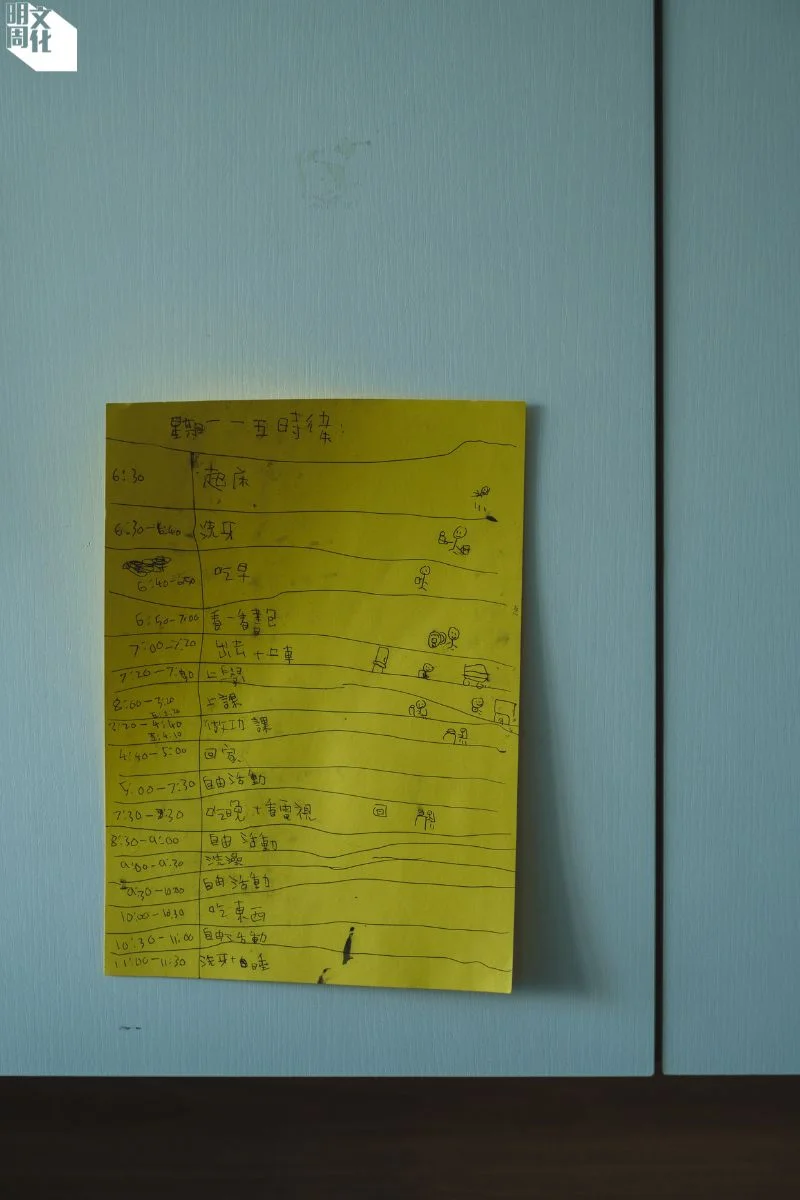 明周文化
星期一一五時候:
6:30 起床
6:30-6:40 洗牙
6:40-6:50 吃早
6:50-7:00 看一看書包
7:00-7:20 出去+上車
7:20-7:40 上學
8:00-3:20 上課
3:20-4:40 做功課
4:40-5:00 回家
5:00-7:30 自由活動
7:30-8:30 吃晚+看電視
8:30-9:00 自由活動
9:00-9:30 洗澡
9:30-10:00 自由活動
10:00-10:30 吃東西
10:30-11:00 自由活動
11:00-11:30 洗牙+睡